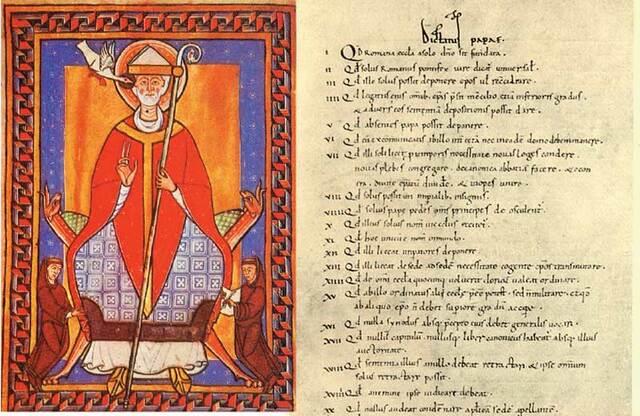 Dictatus papae.
I Qd Romana eccla a solo dno sit fundata.
II Qd solus Romanus pontifex iure dicat universal.
III Qd ille solus possit deponere epos ul reccilare.
IIII Qd legatus eius omib; epis psit in ccilio etia inferioris gradus.
& adversus eos sententia depositionis possit dare.
V Qd absentes papa possit deponere.
VI Qd cu excomunicatis ab illo int cetera nec in eade domo debem manere.
VII Qd illi soli licet p temporis necessitate novas leges condere
novas plebes congregare. de canonica abbatia facere. & econ
tra. divite epatu divide. & inopes unire.
VIII Qd solus possit uti imperialib; insigniis.
VIIII Qd solius papae pedes oms principes deosculent.
X Qd illius solius nom in ecclis recitet.
XI Qd hoc unicu nom in mundo.
XII Qd illi liceat imperatores deponere.
XIII Qd illi liceat de sede ad sede necessitate cogente epos transmutare.
XIIII Qd de omi eccla quocuq; voluerit clericu valeat ordinare.
XV Qd ab illo ordinatus alii eccle potest sed n militare. & qd
ab aliquo epo n debet superiore gradu accipe.
XVI Qd nulla synodus absq; precepto eius debet generalis vocari.
XVII Qd nullu capitulu nullusq; liber canonicus habeat absq; illius
auctoritate.
XVIII Qd sententia illius a nullo debeat retractari & ipse omnium
solus retractare possit.
XVIIII Qd a nemine ipse iudicari debeat.
XX Qd nullus audeat condemnare aplica sede apellante.